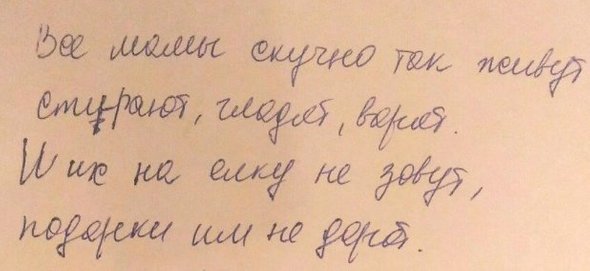 Все мамы скучно так живут
стирают, гладят, варят.
И их на елку не зовут,
подарки им не дарят.